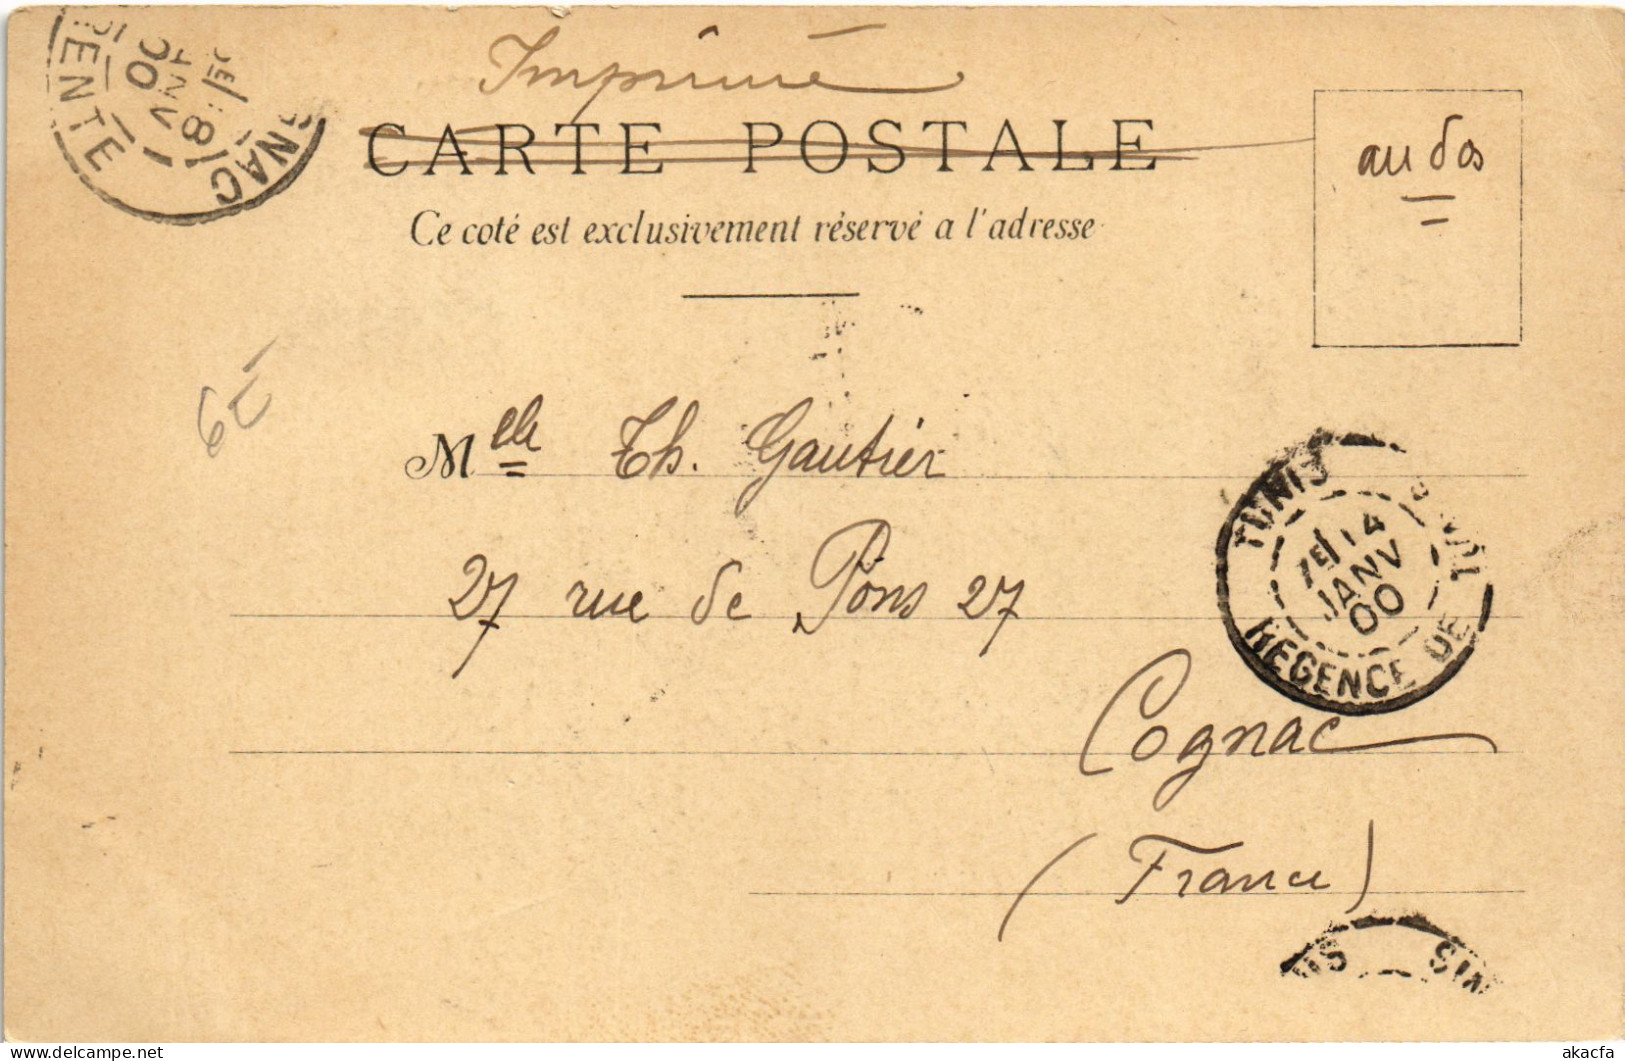 Imprimé
CARTE POSTALE
au dos
Ce coté est exclusivement réservé a l'adresse
Mlle Th. Gautier
27 rue de Pons 27
Cognac
(France)
TUNIS
7E 14
JANV
00
REGENCE DE
GNAC
8
JANV
00
ENTE
6
akacfa